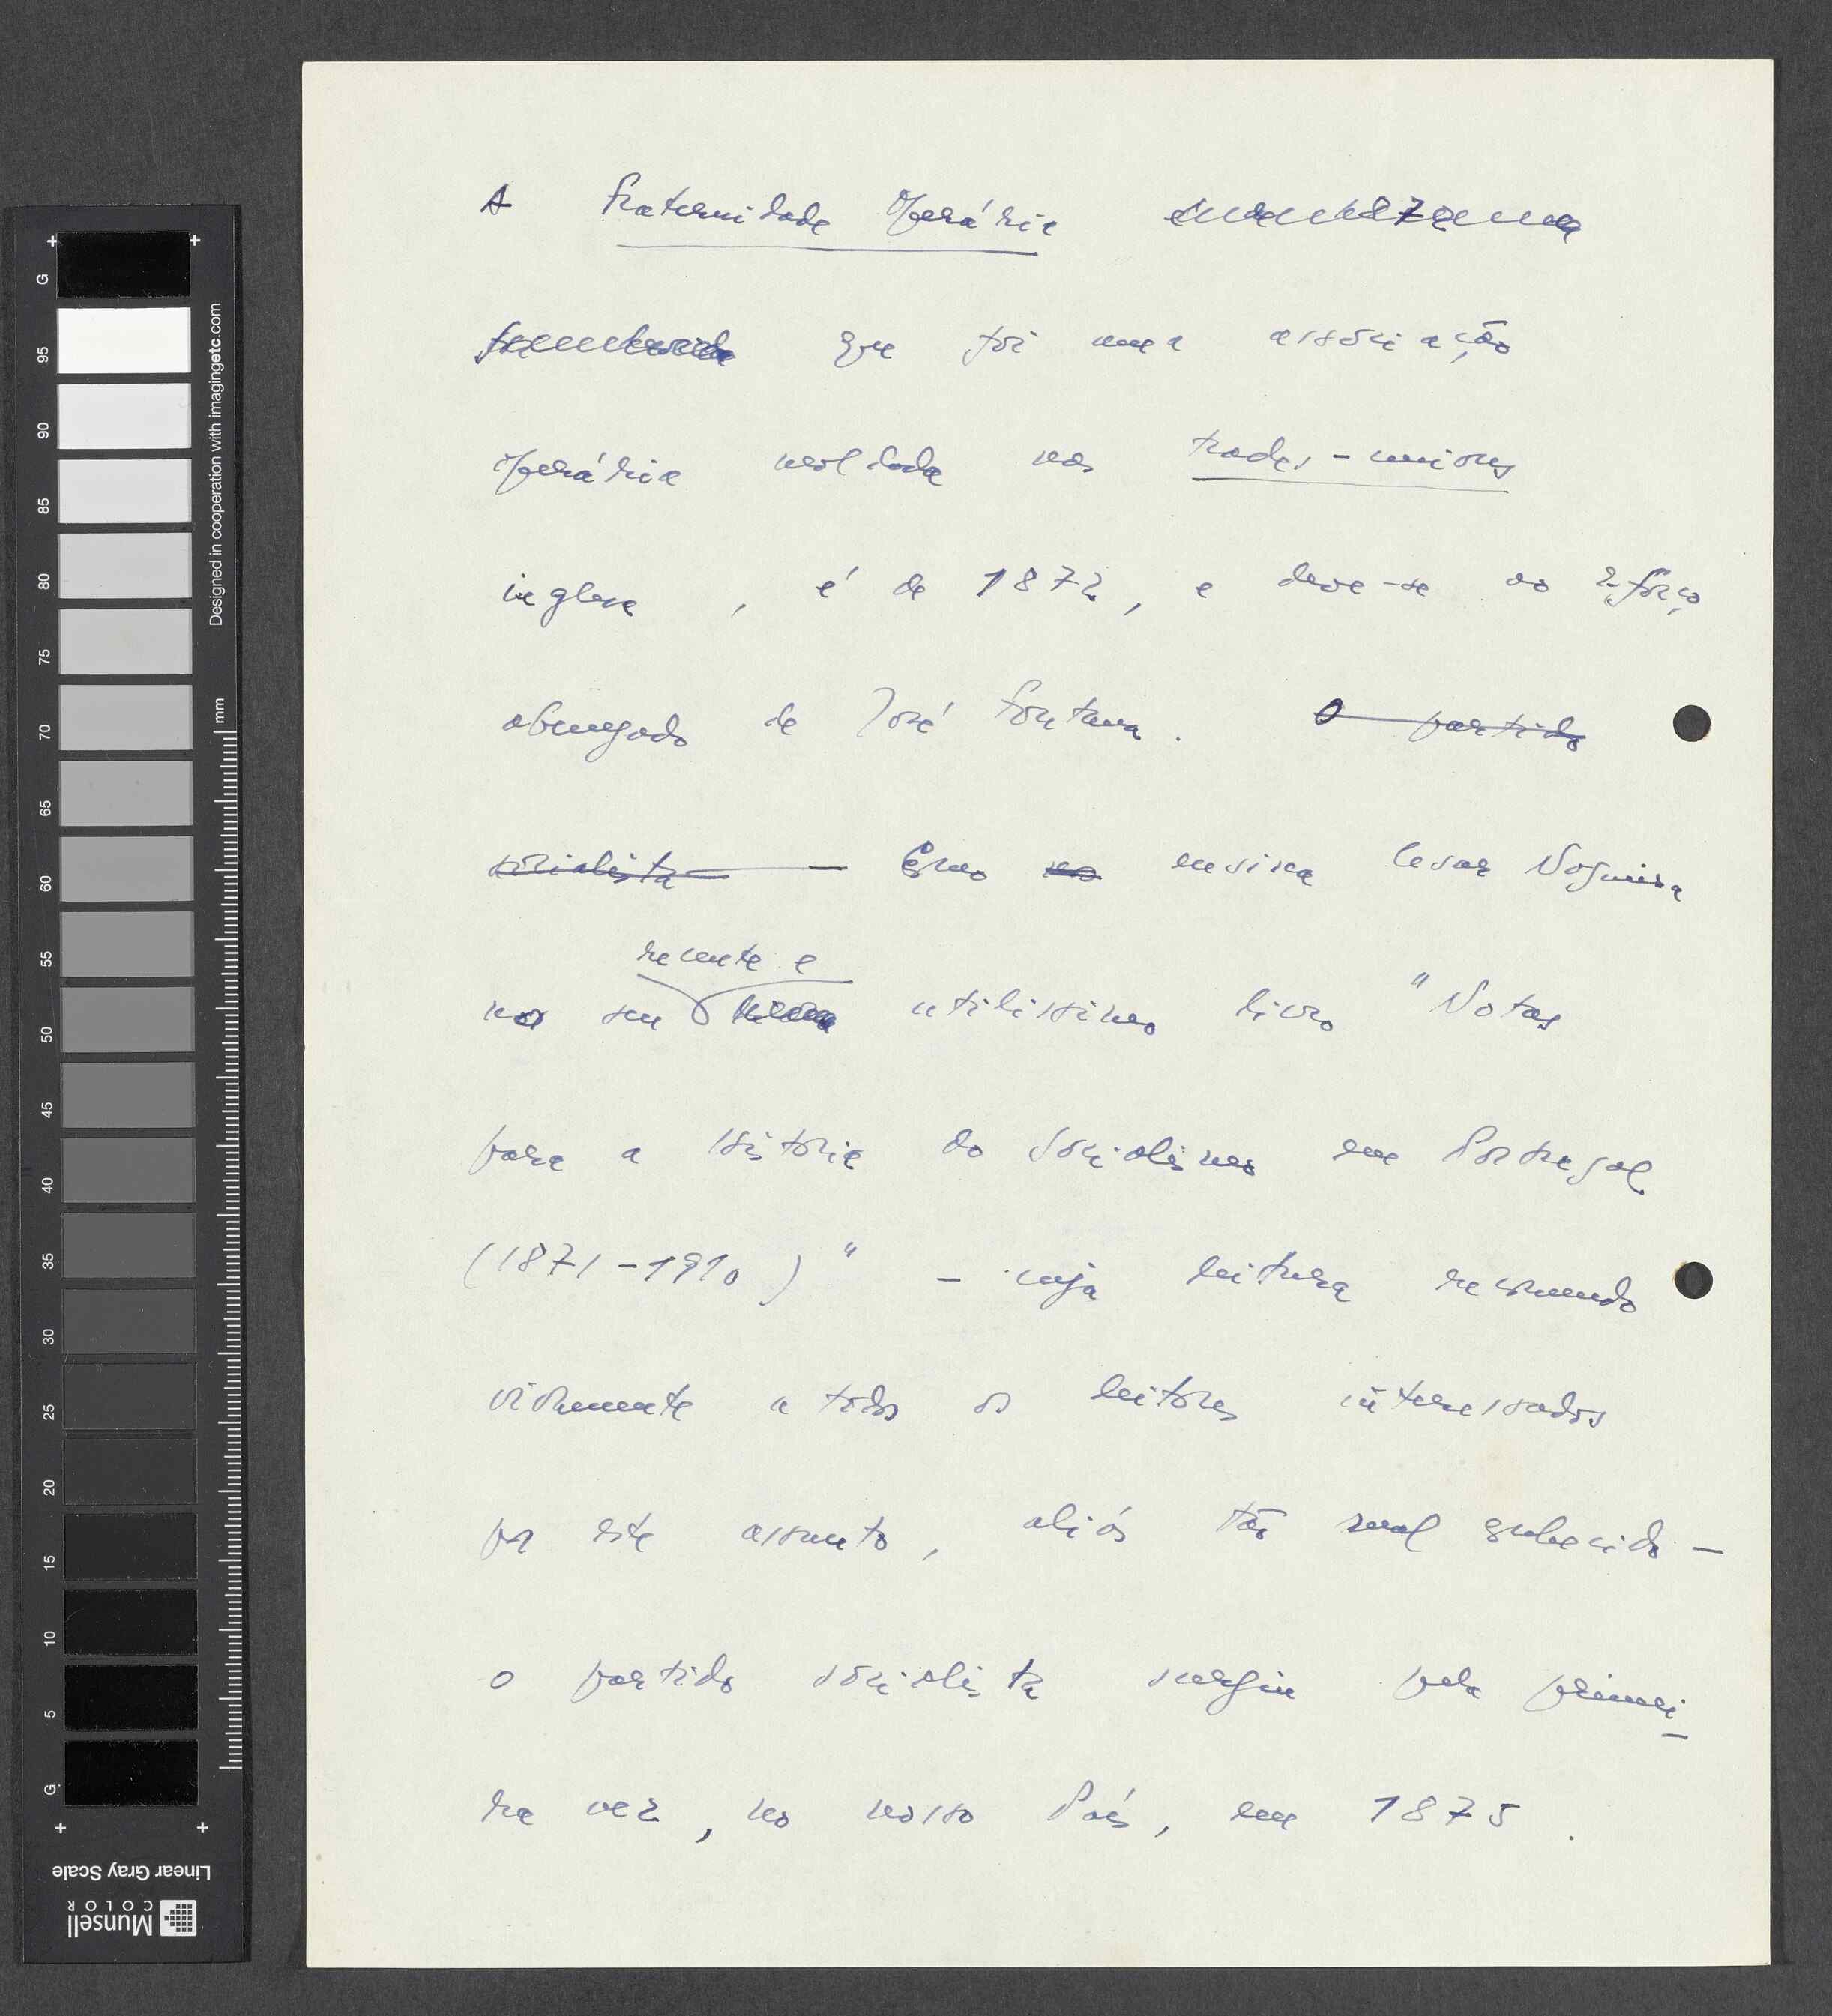 A Fraternidade Operária
que foi uma associação
operária moldada nas trades-unions
inglesa, é de 1872, e deve-se ao esforço
abnegado de José Fontana. O partido
socialista — Como no ensina Cesar Nogueira
recente e
no seu utilissimo livro "Notas
para a História do Socialismo em Portugal
(1871-1910)" — cuja leitura recomendo
vivamente a todos os leitores interessados
por este assunto, aliás tão mal conhecido —
o partido socialista surgiu pela primei-
ra vez, no nosso País, em 1875.
G
95
90
85
80
75
70
65
60
55
50
45
40
35
30
25
20
15
10
5
G
Designed in cooperation with imagingetc.com
mm
Linear Gray Scale
Munsell
COLOR